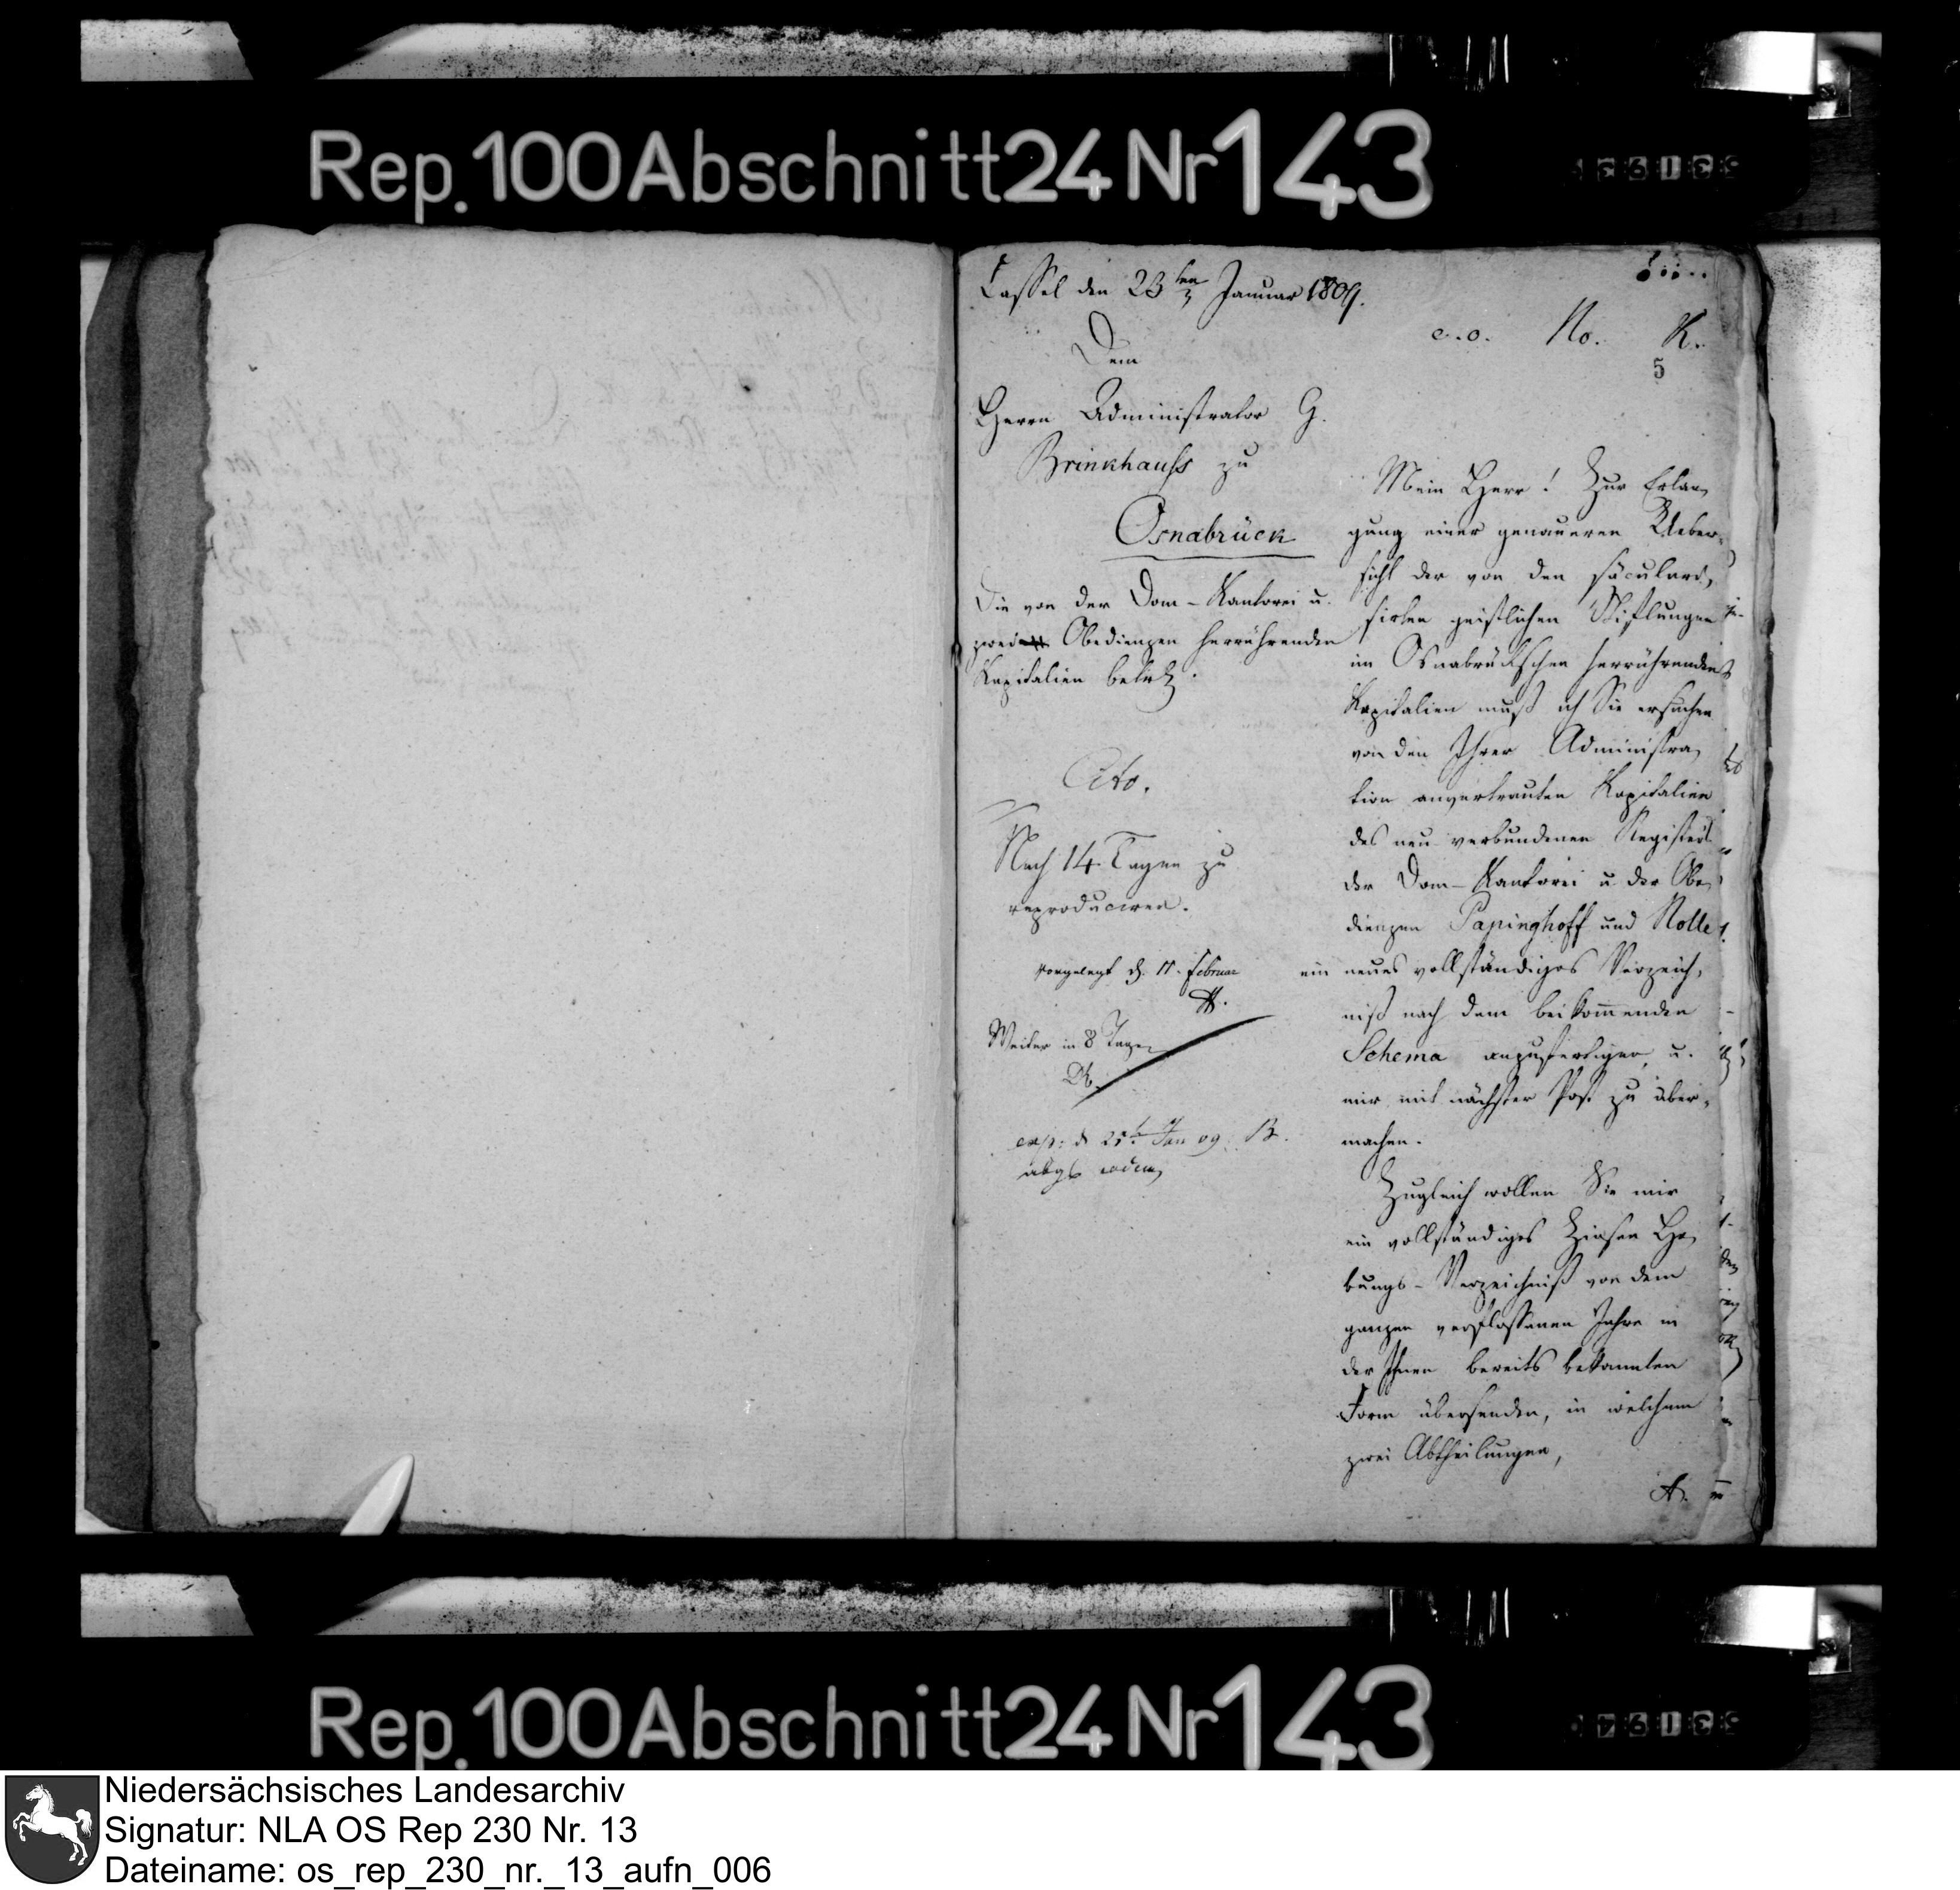 Rep. 100 Abschnitt 24 Nr 143
Cassel den 23ten Januar 1809.
e.o. No. R.
5
Dem
Herrn Administrator G.
Brinkhauss zu
Osnabrück
Die von der Dom-Kantorei u.
zwei Obedienzen herrührenden
Kapitalien betr.
Cito.
Nach 14 Tagen zu
reproduciren.
vorgelegt d. 11. Februar
Weiter in 8 Tagen
exp: d 25t Jan 09. B.
abgs eodem
Mein Herr! Zur Erlan
gung einer genaueren Ueber-
sicht der von den säculari-
sirten geistlichen Stiftungen
im Osnabrückschen herrührenden
Kapitalien muß ich Sie ersuchen
von den Ihrer Administra
tion anvertrauten Kapitalien
des neu verbundenen Registers
der Dom-Kantorei u der Obe
dienzen Papinghoff und Nolle
ein neues vollständiges Verzeich-
niß nach dem beikom̅enden
Schema anzufertigen u.
mir mit nächster Post zu über-
machen.
Zugleich wollen Sie mir
ein vollständiges Zinsen He
bungs-Verzeichniß von dem
ganzen verflossenen Jahre in
der Ihnen bereits bekannten
Form übersenden, in welchem
zwei Abtheilungen,
A.
Rep. 100 Abschnitt 24 Nr 143
Niedersächsisches Landesarchiv
Signatur: NLA OS Rep 230 Nr. 13
Dateiname: os_rep_230_nr._13_aufn_006